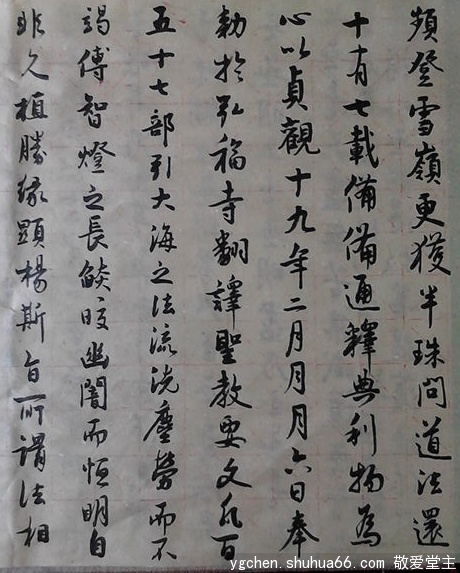 頻登雪嶺更獲半珠問道法還
十有七載備備通釋典利物為
心以貞觀十九年二月月月六日奉
勅於弘福寺翻譯聖教要文凡百
五十七部引大海之法流洗塵勞而不
竭傳智燈之長燄皎幽闇而恒明自
非久植勝緣顯楊斯旨所謂法相
ygchen.shuhua66.com 敬爱堂主